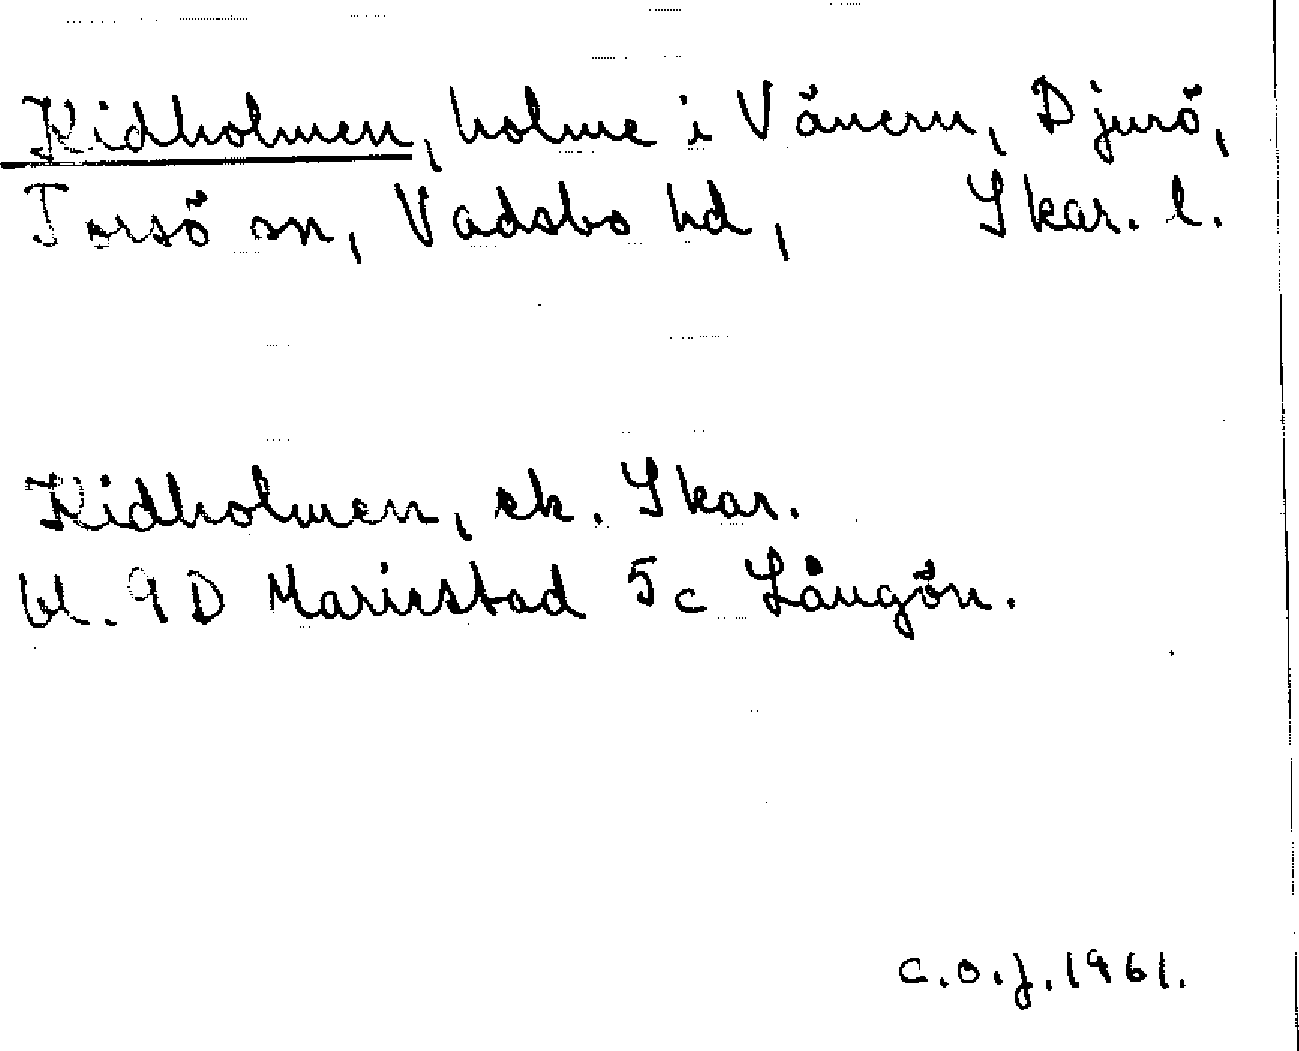 Kidholmen, holme i Vänern, Djurö,
Torsö sn, Vadsbo hd, Skar. l.
Kidholmen, ek. Skar.
bl. 9D Mariestad 5c Långön.
C.O.J. 1961.